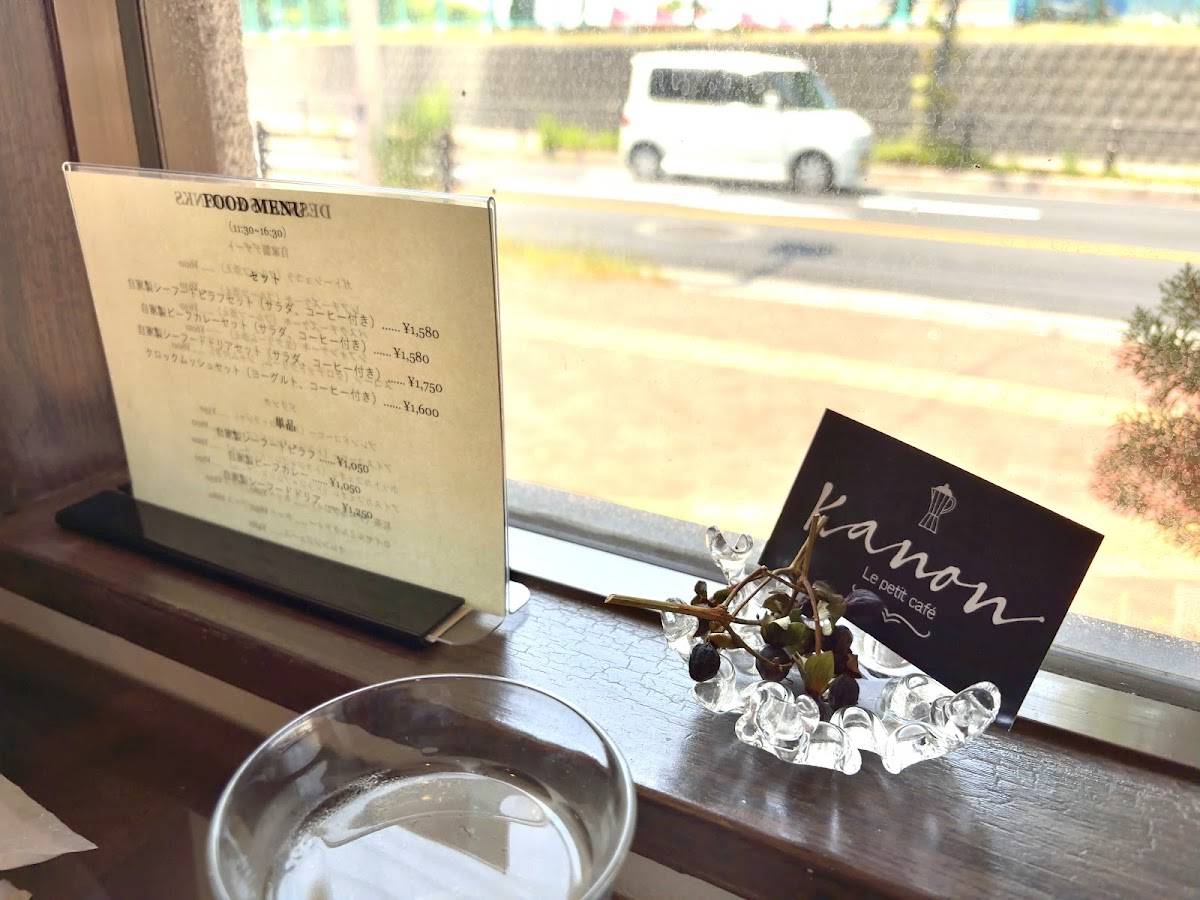 FOOD MENU
(11:30~16:30)
セット
自家製シーフードピラフセット (サラダ、コーヒー付き) ...... ¥1,580
自家製ビーフカレーセット (サラダ、コーヒー付き) ...... ¥1,580
自家製シーフードドリアセット (サラダ、コーヒー付き) ...... ¥1,750
クロックムッシュセット (ヨーグルト、コーヒー付き) ...... ¥1,600
単品
自家製シーフードピラフ ...... ¥1,050
自家製ビーフカレー ...... ¥1,050
自家製シーフードドリア ...... ¥1,250
Kanon
Le petit café